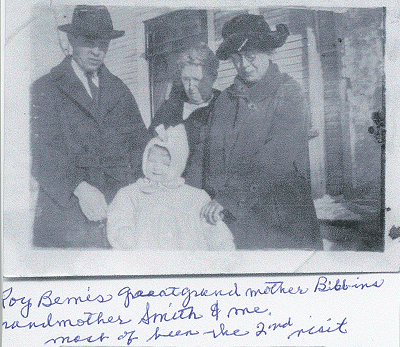 Roy Bemis Graeatgrand mother Bibbins
randmother Smith & me.
most of been the 2nd visit